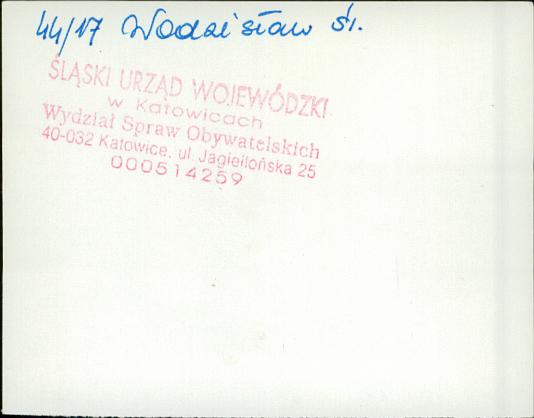 44/17 Wodzisław Śl.
ŚLĄSKI URZĄD WOJEWÓDZKI
w Katowicach
Wydział Spraw Obywatelskich
40-032 Katowice, ul. Jagiellońska 25
000514259